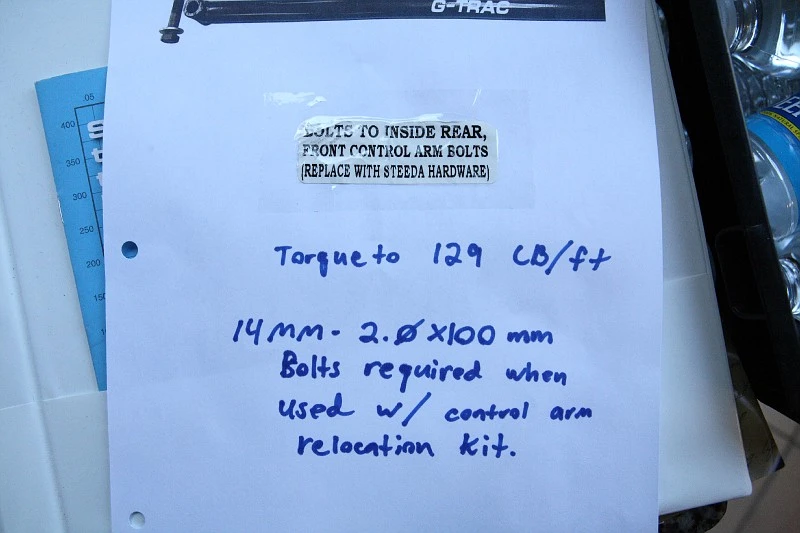 G-TRAC
BOLTS TO INSIDE REAR,
FRONT CONTROL ARM BOLTS
(REPLACE WITH STEEDA HARDWARE)
Torque to 129 LB/ft
14MM- 2.ØX100mm
Bolts required when
used w/ control arm
relocation kit.
.05
400
350
300
250
200